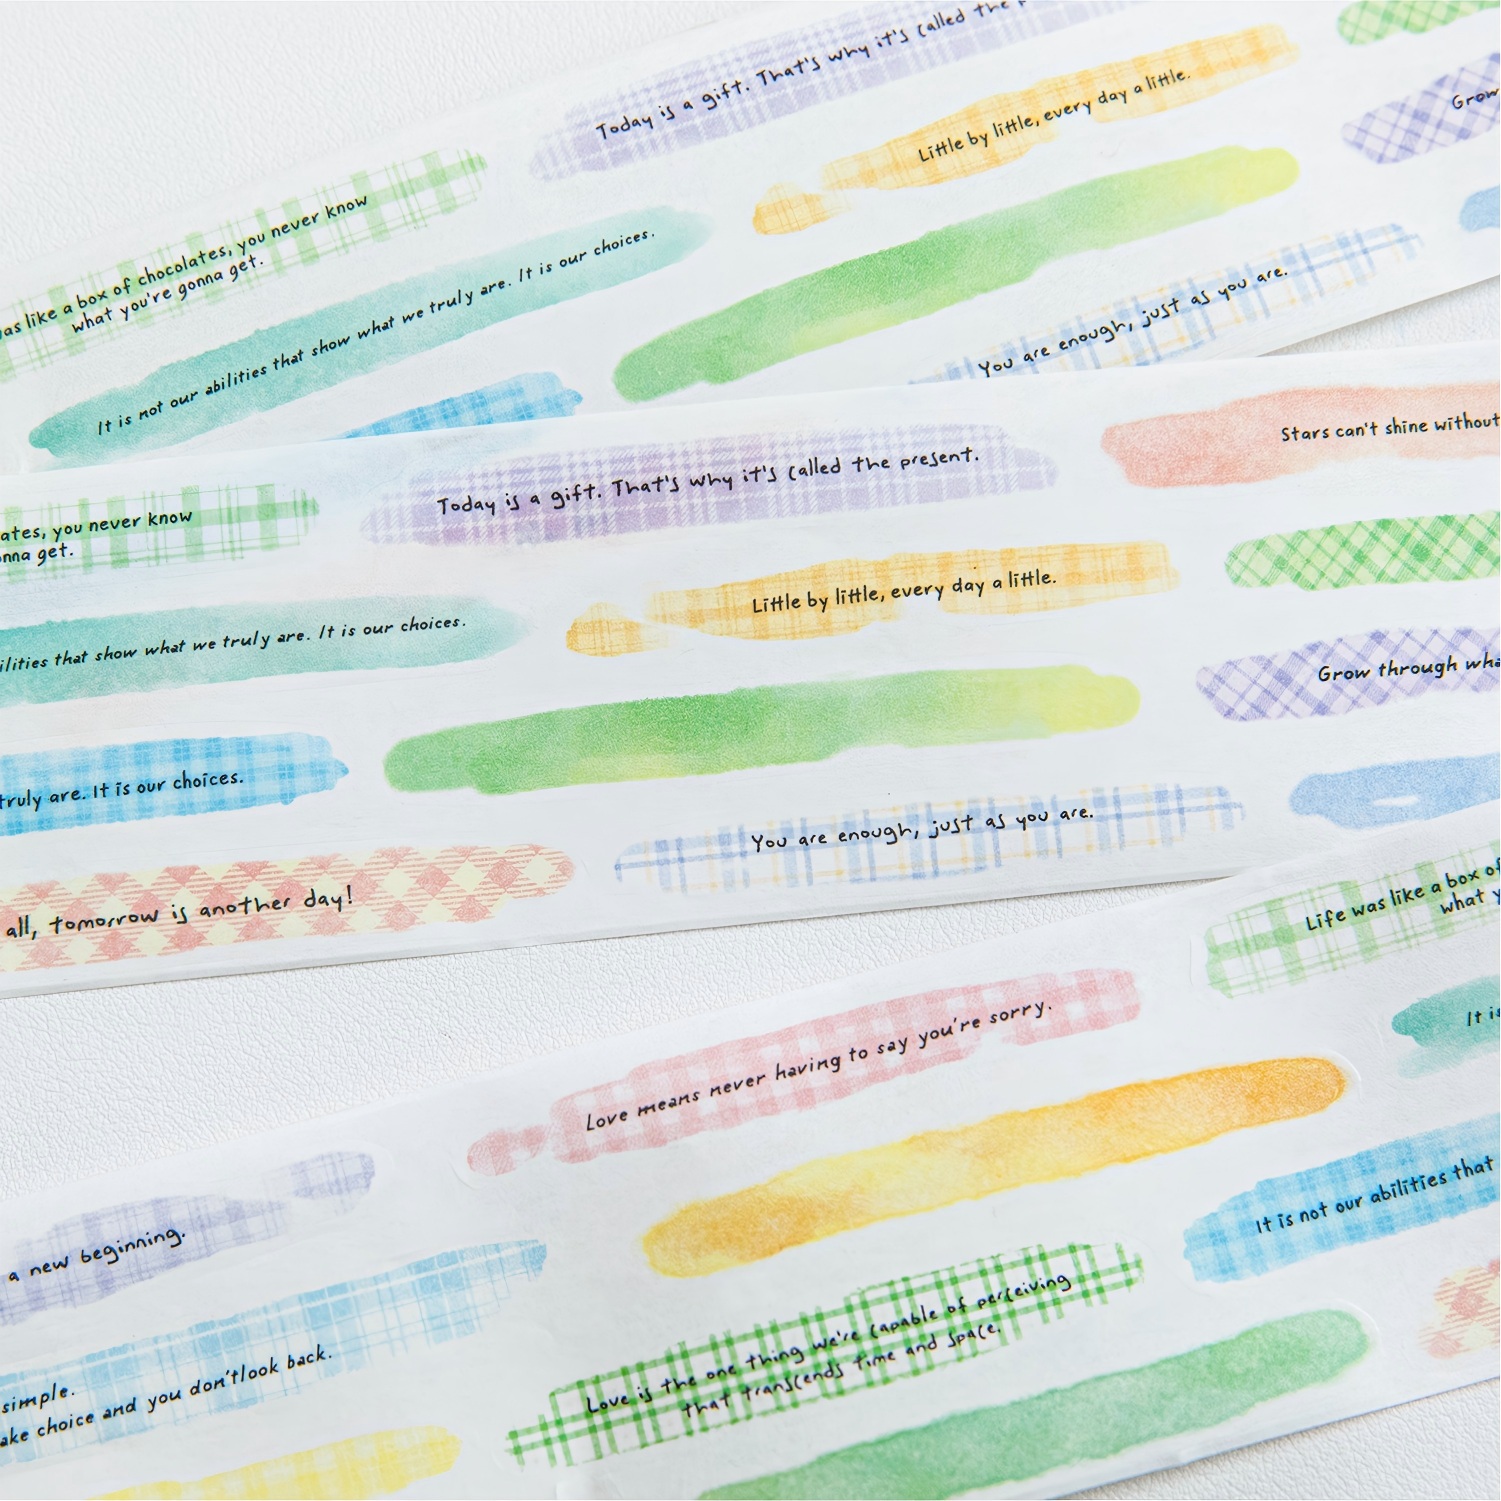 Today is a gift. That's why it's called the
Little by little, every day a little.
Grow
as like a box of chocolates, you never know
what you're gonna get.
It is not our abilities that show what we truly are. It is our choices.
You are enough, just as you are.
Today is a gift. That's why it's called the present.
Stars can't shine without
ates, you never know
nna get.
Little by little, every day a little.
ilities that show what we truly are. It is our choices.
Grow through wha
truly are. It is our choices.
You are enough, just as you are.
all, tomorrow is another day!
Life was like a box of
what y
Love means never having to say you're sorry.
It is
a new beginning.
It is not our abilities that
simple.
ake choice and you don'tlook back.
Love is the one thing we're capable of perceiving
that transcends time and space.